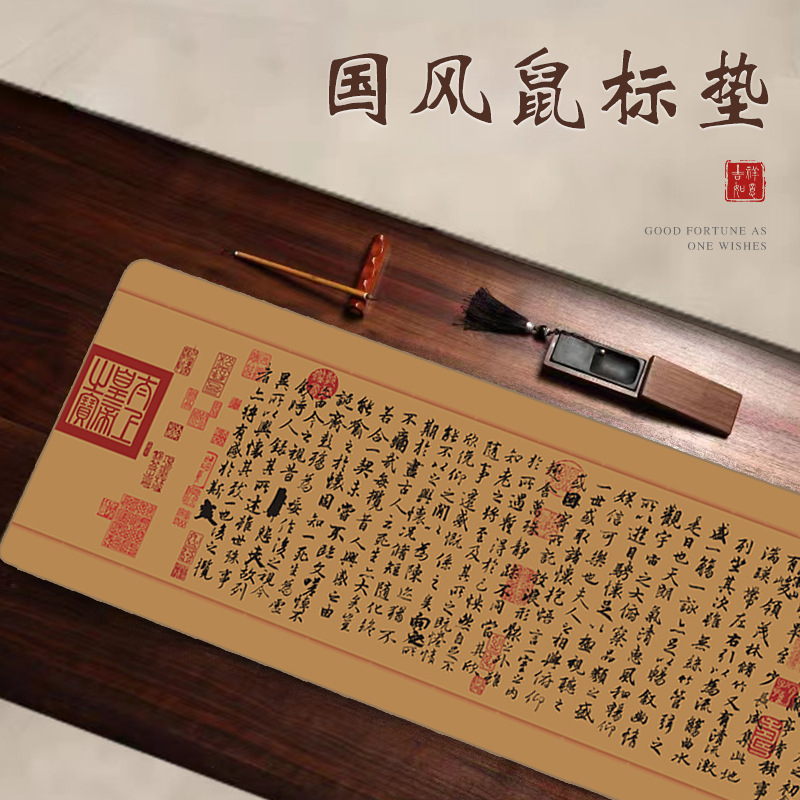 国风鼠标垫
吉祥如意
GOOD FORTUNE AS
ONE WISHES
之初
蘭亭脩稧事
少長咸集此地
峻領茂林脩竹又有清流激
湍暎帶左右引以為流觴曲水
列坐其次雖無絲竹管弦之
盛一觴一詠亦足以暢敘幽情
是日也天朗氣清惠風和暢仰
觀宇宙之大俯察品類之盛
所以遊目騁懷足以極視聽之
娛信可樂也夫人之相與俯仰
一世或取諸懷抱悟言一室之內
或因寄所託放浪形骸之外雖
趣舍萬殊靜躁不同當其欣
於所遇蹔得於己怏然自足不
知老之將至及其所之既惓情
隨事遷感慨係之矣向之所
欣俛仰之閒以為陳迹猶不
能不以之興懷況脩短隨化終
期於盡古人云死生亦大矣豈
不痛哉每攬昔人興感之由
若合一契未嘗不臨文嗟悼不
能喻之於懷固知一死生為虛
誕齊彭殤為妄作後之視今
亦由今之視昔悲夫故列
敘時人錄其所述雖世殊事
異所以興懷其致一也後之攬
者亦將有感於斯文
太上皇帝之寶